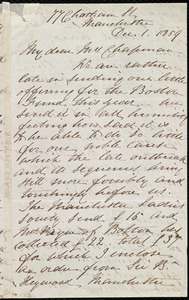 77 Chatham St.
Manchester
Dec. 1. 1859
My dear Mrs Chapman
We are rather
late in sending our little
offering for the Boston
Fund this year. We
send it in all humility
feeling how sad it is
to be able to do so little
for our noble cause
which the late outbreak
and its sequences
will more forcibly and
before us.
The Manchester Ladies
Society send £15 and
Mrs of Bolton has
collected £22. total £37
for which I enclose
an order from Sir B.
Heywood Manchester